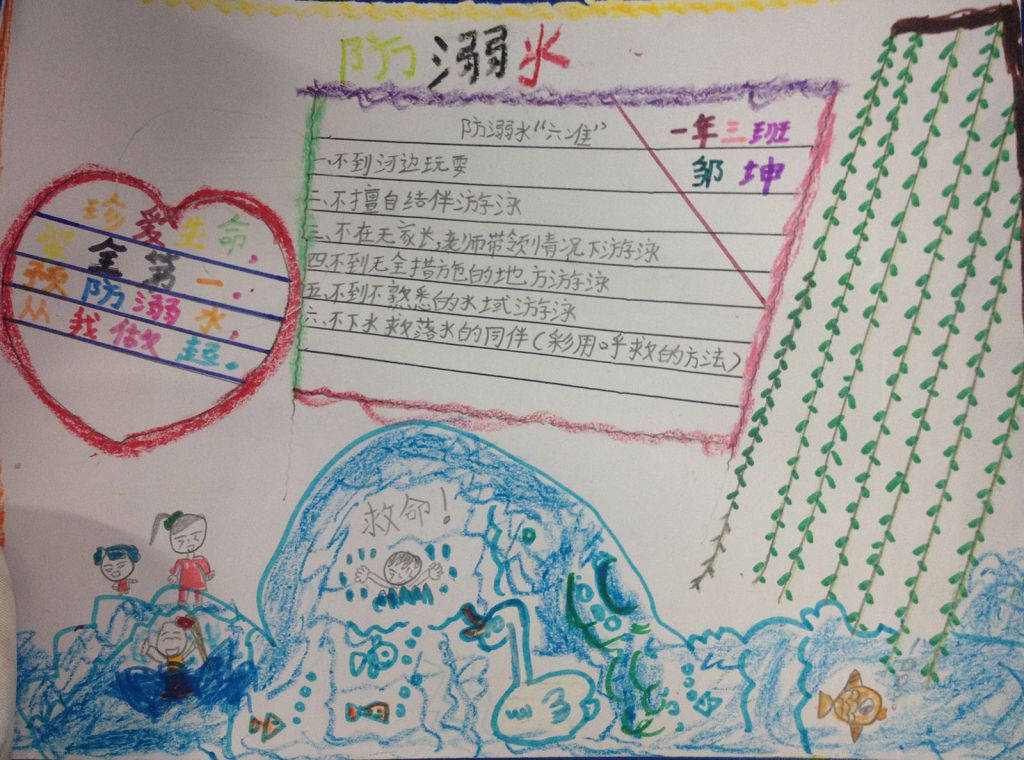 防溺水
防溺水“六准”
一年三班
邹坤
一、不到河边玩耍
二、不擅自结伴游泳
三、不在无家长老师带领情况下游泳
四不到无全措施的地方游泳
五、不到不熟悉的水域游泳
六、不下水救落水的同伴(彩用呼救的方法)
珍爱生命,
安全第一.
预防溺水,
从我做起。
救命!